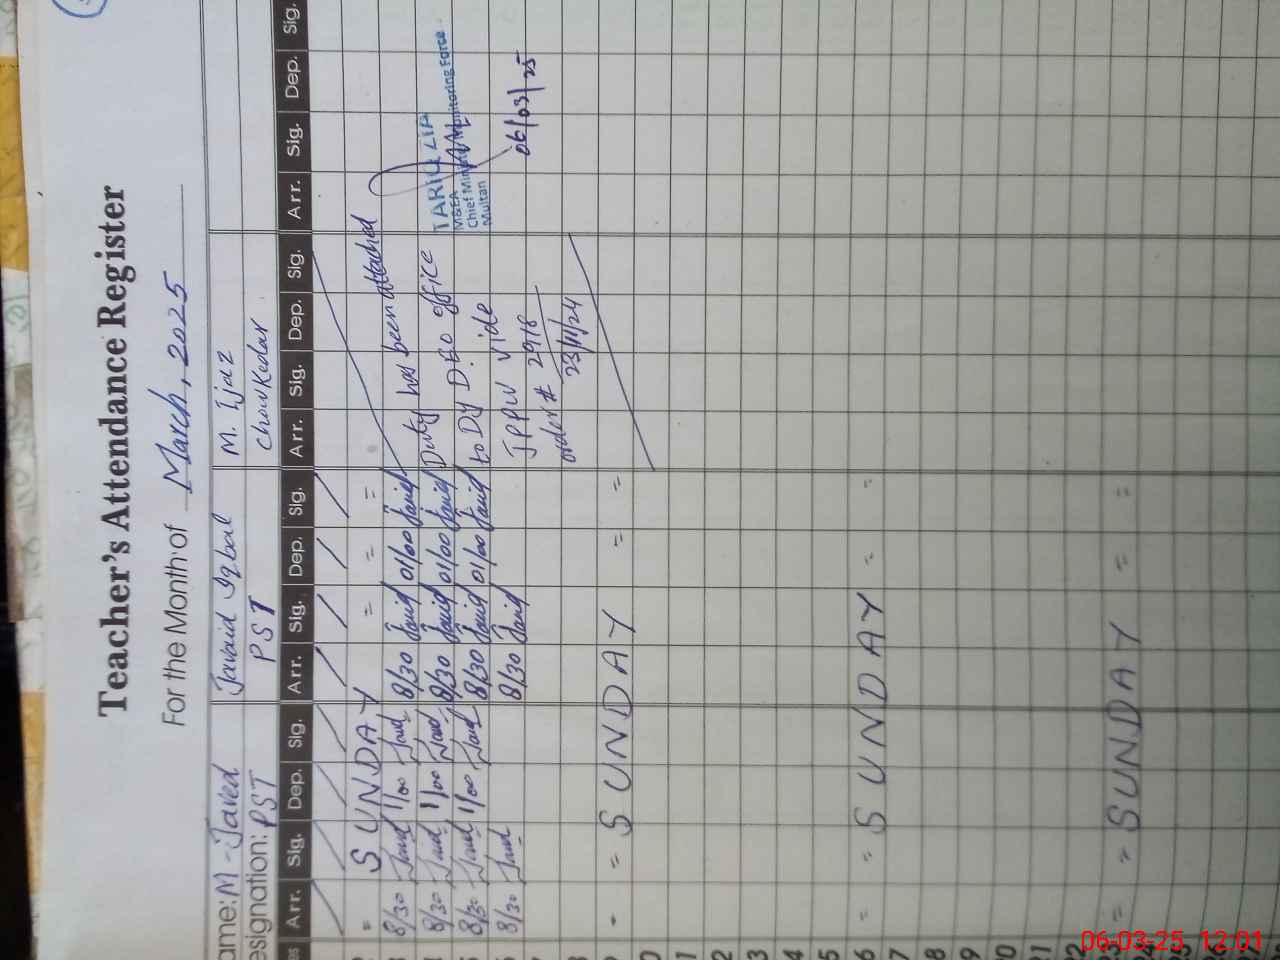 Teacher's Attendance Register
For the Month of March, 2025
ame: M - Javed Javaid Iqbal M. Ijaz
esignation: PST PST Chowkedar
es Arr. Sig. Dep. Sig. Arr. Sig. Dep. Sig. Arr. Sig. Dep. Sig. Arr. Sig. Dep. Sig.
= SUNDAY = = =
8/30 Javed 1/00 Javed 8/30 Javid 01/00 Javid Duty has been attached
8/30 Javed 1/00 Javed 8/30 Javid 01/00 Javid to Dy D.EO office
8/30 Javed 1/00 Javed 8/30 Javid 01/00 Javid JPPW vide
8/30 Javed 8/30 Javid order # 2918
23/11/24
TARIQ ZIA
M&EA
Chief Minister Monitoring Force
Multan
06/03/25
9 - = SUNDAY = =
10
11
12
13
14
15
16 = = SUNDAY = =
17
18
19
20
21
22
23 = = SUNDAY = =
24
25
26
27
06-03-25 12:01